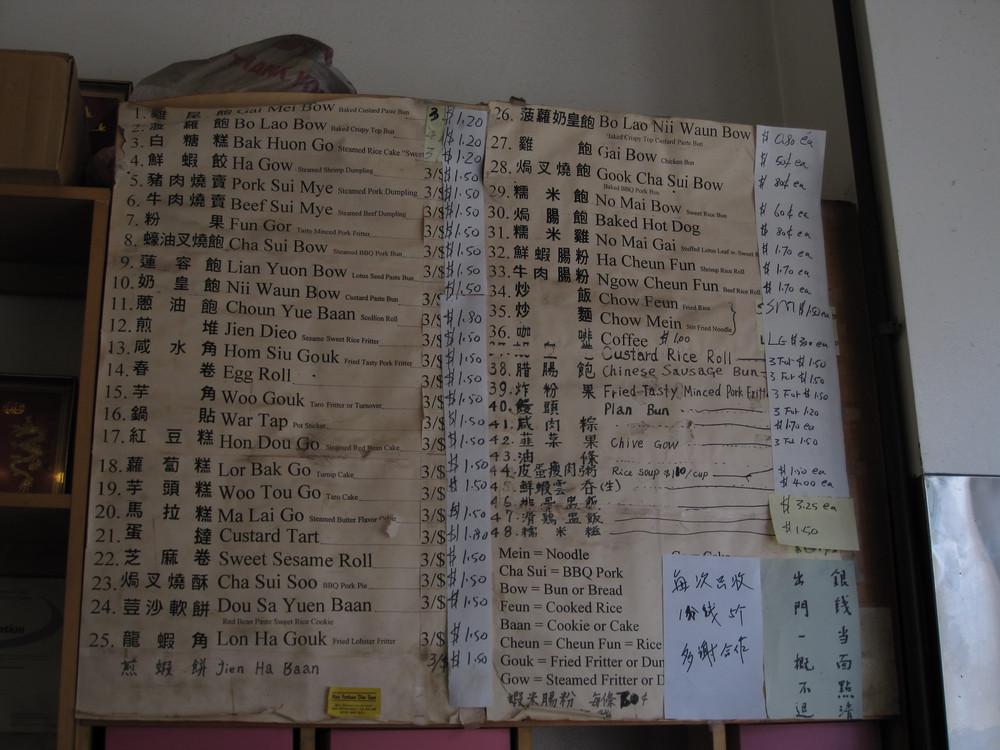 THANK YOU
1. 雞 尾 飽 Gai Mei Bow Baked Custard Paste Bun 3 $1.20
2. 菠 蘿 飽 Bo Lao Bow Baked Crispy Top Bun $1.20
3. 白 糖 糕 Bak Huon Go Steamed Rice Cake "Sweet $1.20
4. 鮮 蝦 餃 Ha Gow Steamed Shrimp Dumpling 3/$ $1.50
5. 豬肉燒賣 Pork Sui Mye Steamed Pork Dumpling 3/$ $1.50
6. 牛肉燒賣 Beef Sui Mye Steamed Beef Dumpling 3/$ $1.50
7. 粉 果 Fun Gor Tasty Minced Pork Fritter 3/$ $1.50
8. 蠔油叉燒飽 Cha Sui Bow Steamed BBQ Pork Bun 3/$ $1.50
9. 蓮 容 飽 Lian Yuon Bow Lotus Seed Paste Bun 3/$ $1.50
10. 奶 皇 飽 Nii Waun Bow Custard Paste Bun $1.50
11. 蔥 油 飽 Choun Yue Baan Scallion Roll 3/$ $1.80
12. 煎 堆 Jien Dieo Sesame Sweet Rice Fritter 3/$ $1.50
13. 咸 水 角 Hom Siu Gouk Fried Tasty Pork Fritter 3/$ $1.50
14. 春 卷 Egg Roll 3/$ $1.50
15. 芋 角 Woo Gouk Taro Fritter or Turnover 3/$ $1.50
16. 鍋 貼 War Tap Pot Sticker 3/$ $1.50
17. 紅 豆 糕 Hon Dou Go Steamed Red Bean Cake 3/$ $1.50
18. 蘿 蔔 糕 Lor Bak Go Turnip Cake 3/$ $1.50
19. 芋 頭 糕 Woo Tou Go Taro Cake 3/$ $1.50
20. 馬 拉 糕 Ma Lai Go Steamed Butter Flavor Cake 3/$ $1.50
21. 蛋 撻 Custard Tart 3/$ $1.80
22. 芝 麻 卷 Sweet Sesame Roll 3/$ $1.50
23. 焗叉燒酥 Cha Sui Soo BBQ Pork Pie 3/$ $1.50
24. 荳沙軟餅 Dou Sa Yuen Baan 3/$ $1.50
Red Bean Paste Sweet Rice Cookie
25. 龍 蝦 角 Lon Ha Gouk Fried Lobster Fritter 3/$ $1.50
煎 蝦 餅 Jien Ha Baan 3/$ $1.50
26. 菠蘿奶皇飽 Bo Lao Nii Waun Bow $ 0.80 ea
Baked Crispy Top Custard Paste Bun
27. 雞 飽 Gai Bow Chicken Bun $ 50¢ ea
28. 焗叉燒飽 Gook Cha Sui Bow $ 80¢ ea
Baked BBQ Pork Bun
29. 糯 米 飽 No Mai Bow Sweet Rice Bun $ 60¢ ea
30. 焗 腸 飽 Baked Hot Dog $ 80¢ ea
31. 糯 米 雞 No Mai Gai Stuffed Lotus Leaf w. Sweet $ 1.70 ea
32. 鮮蝦腸粉 Ha Cheun Fun Shrimp Rice Roll $ 1.70 ea
33. 牛肉腸粉 Ngow Cheun Fun Beef Rice Roll $ 1.70 ea
34. 炒 飯 Chow Feun Fried Rice SM $1.50 ea
35. 炒 麵 Chow Mein Stir Fried Noodle
36. 咖 啡 Coffee $1.00 LG $3.00 ea
Custard Rice Roll 3 For $1.50
38. 腊 腸 飽 Chinese Sausage Bun 3 For $1.50
39. 炸 粉 果 Fried Tasty Minced Pork Fritt 3 For $1.50
40. 饅 頭 Plan Bun 3 For 1.20
41. 咸 肉 粽 $1.70 ea
42. 韭 菜 果 Chive Gow 3 For 1.50
43. 油 條
44. 皮蛋瘦肉粥 Rice Soup $1.00/cup $1.00 ea
45. 鮮蝦雲吞(生) $4.00 ea
46. 排骨盅飯 $3.25 ea
47. 滑鷄盅飯
48. 糯 米 $1.50
Mein = Noodle
Cha Sui = BBQ Pork
Bow = Bun or Bread
Feun = Cooked Rice
Baan = Cookie or Cake
Cheun = Cheun Fun = Rice
Gouk = Fried Fritter or Dum
Gow = Steamed Fritter or D
蝦米腸粉 每條 80¢
每次只收
1份钱 5个
多謝合作
銀錢当面點清
出門一概不退